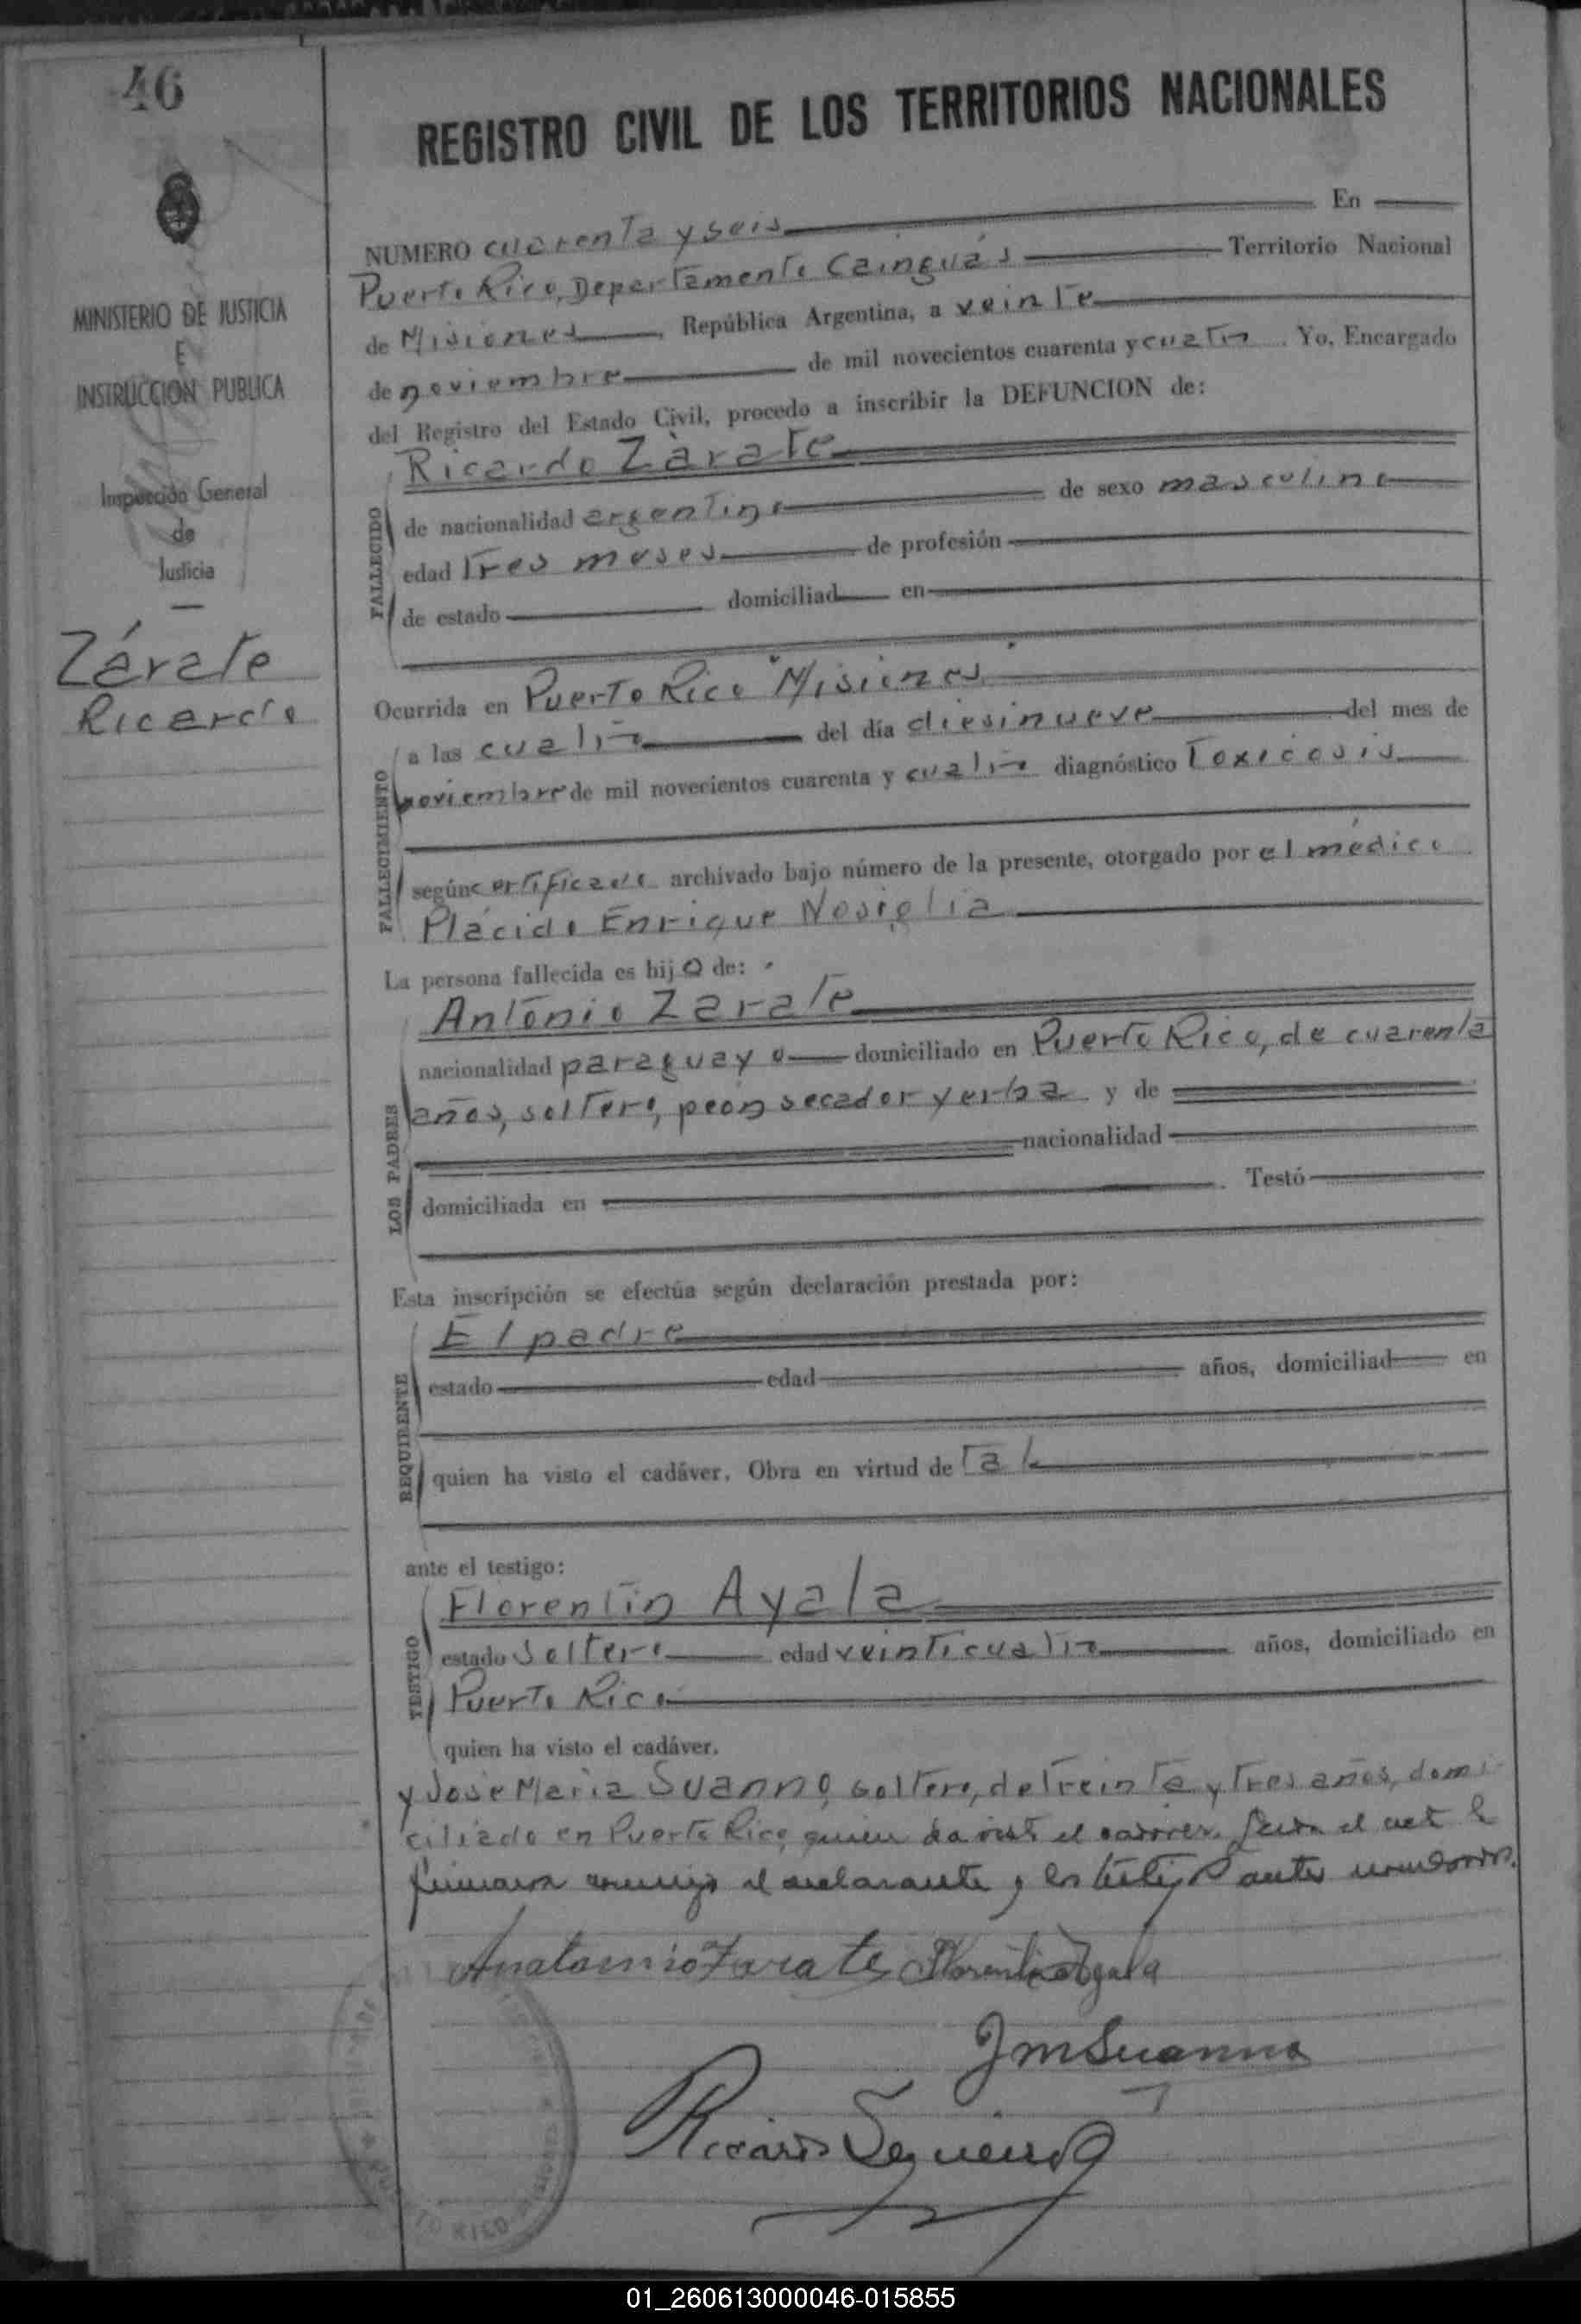 46
REGISTRO CIVIL DE LOS TERRITORIOS NACIONALES
MINISTERIO DE JUSTICIA
E
INSTRUCCION PUBLICA
Inspección General
de
Justicia
Zárate
Ricardo
NUMERO cuarenta y seis En
Puerto Rico, Departamento Cainguás Territorio Nacional
de Misiones, República Argentina, a veinte
de noviembre de mil novecientos cuarenta y cuatro. Yo, Encargado
del Registro del Estado Civil, procedo a inscribir la DEFUNCION de:
FALLECIDO
Ricardo Zárate
de nacionalidad argentino de sexo masculino
edad Tres meses de profesión
de estado domiciliad en
Ocurrida en Puerto Rico "Misiones"
FALLECIMIENTO
a las cuatro del día diesinueve del mes de
noviembre de mil novecientos cuarenta y cuatro diagnóstico Toxicosis
según certificado archivado bajo número de la presente, otorgado por el médico
Plácido Enrique Nosiglia
La persona fallecida es hijo de:
LOS PADRES
Antonio Zarate
nacionalidad paraguayo domiciliado en Puerto Rico, de cuarenta
años, soltero, peón secador yerba y de
nacionalidad
domiciliada en Testó
Esta inscripción se efectúa según declaración prestada por:
REQUIRENTE
El padre
estado edad años, domiciliad en
quien ha visto el cadáver. Obra en virtud de tal
ante el testigo:
TESTIGO
Florentín Ayala
estado soltero edad veinticuatro años, domiciliado en
Puerto Rico
quien ha visto el cadáver.
y José María Suanno, soltero, de treinta y tres años, domi-
ciliado en Puerto Rico, quien ha visto el cadáver. Leida el acta la
firmaron conmigo el declarante y los testigos antes nombrados.
Zarate Florentin Ayala
J M Suanno
Ricardo
RICO
01_260613000046-015855